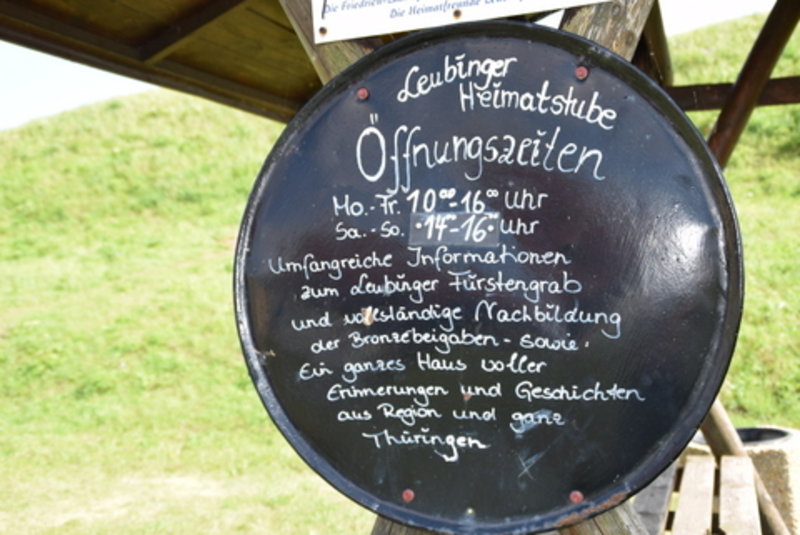 Die Heimatfreunde
Leubinger
Heimatstube
Öffnungszeiten
Mo.-Fr. 10⁰⁰-16⁰⁰ Uhr
Sa.-So. 14-16 Uhr
Umfangreiche Informationen
zum Leubinger Fürstengrab
und vollständige Nachbildung
der Bronzebeigaben - sowie
Ein ganzes Haus voller
Erinnerungen und Geschichten
aus Region und ganz
Thüringen